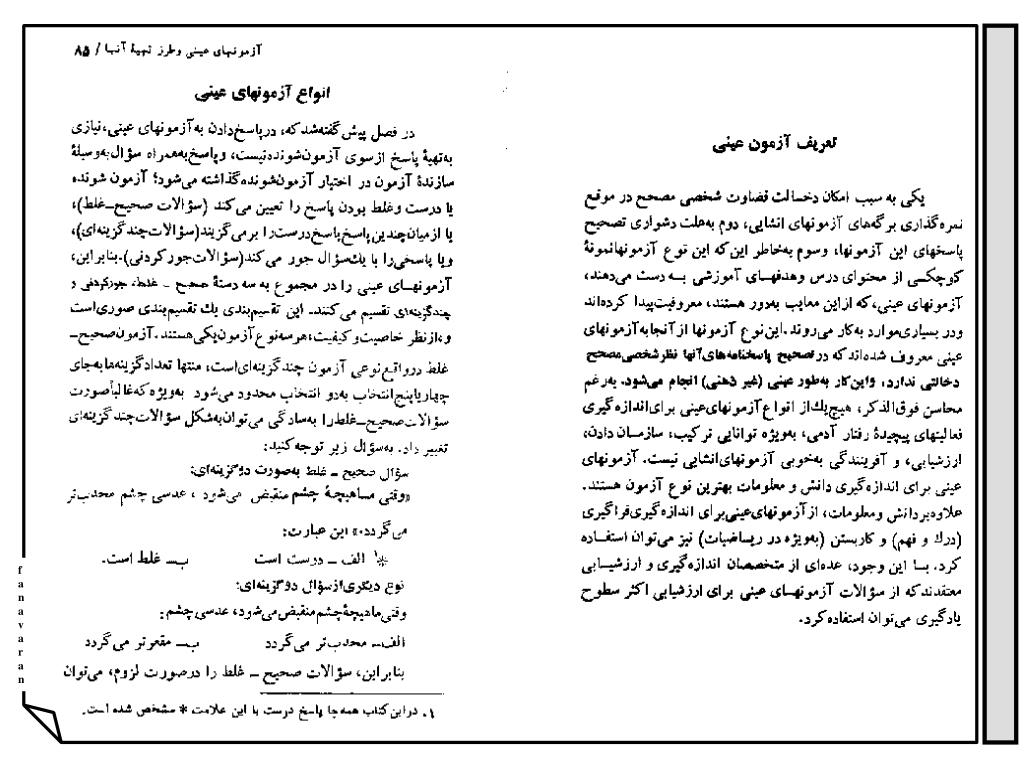 تعریف آزمون عینی
یکی به سبب امکان دخالت قضاوت شخصی مصحح در موقع
نمره‌گذاری برگه‌های آزمونهای انشایی، دوم به‌علت دشواری تصحیح
پاسخهای این آزمونها، وسوم به‌خاطر این‌که این نوع آزمونهانمونهٔ
کوچکی از محتوای درس وهدفهای آموزشی به دست می‌دهند،
آزمونهای عینی، که ازاین معایب به‌دور هستند، معروفیت‌پیدا کرده‌اند
ودر بسیاری‌موارد به‌کار می‌روند. این‌نوع آزمونها از آنجا به‌آزمونهای
عینی معروف شده‌اند که درتصحیح پاسخنامه‌های‌آنها نظرشخصی‌مصحح
دخالتی ندارد، واین‌کار به‌طور عینی (غیر ذهنی) انجام می‌شود. به‌رغم
محاسن فوق‌الذکر، هیچ‌یك‌از انواع‌آزمونهای‌عینی برای‌اندازه‌گیری
فعالیتهای پیچیدهٔ رفتار آدمی، به‌ویژه توانایی ترکیب، سازمان دادن،
ارزشیابی، و آفرینندگی به‌خوبی آزمونهای‌انشایی نیست. آزمونهای
عینی برای اندازه‌گیری دانش و معلومات بهترین نوع آزمون هستند.
علاوه‌بردانش ومعلومات، ازآزمونهای‌عینی‌برای اندازه‌گیری‌فراگیری
(درك و فهم) و کاربستن (به‌ویژه در ریاضیات) نیز می‌توان استفاده
کرد. با این وجود، عده‌ای از متخصصان اندازه‌گیری و ارزشیابی
معتقدند که از سؤالات آزمونهای عینی برای ارزشیابی اکثر سطوح
یادگیری می‌توان استفاده‌کرد.
آزمونهای عینی وطرز تهیهٔ آنها / ۸۵
انواع آزمونهای عینی
در فصل پیش‌گفته‌شد که، درپاسخ‌دادن به‌آزمونهای عینی، نیازی
به‌تهیهٔ پاسخ ازسوی آزمون‌شونده‌نیست، و پاسخ‌به‌همراه سؤال‌به‌وسیلهٔ
سازندهٔ آزمون در اختیار آزمون‌شونده‌گذاشته می‌شود؛ آزمون شونده
یا درست وغلط بودن پاسخ را تعیین می‌کند (سؤالات صحیح–غلط)،
یا ازمیان‌چندین‌پاسخ‌پاسخ‌درست‌را برمی‌گزیند(سؤالات‌چندگزینه‌ای)،
ویا پاسخی‌را با یك‌سؤال جور می‌کند(سؤالات‌جورکردنی). بنابراین،
آزمونهای عینی را در مجموع به سه دستهٔ صحیح – غلط، جورکردنی و
چندگزینه‌ای تقسیم می‌کنند. این تقسیم‌بندی یك تقسیم‌بندی صوری‌است
و، ازنظر خاصیت‌وکیفیت، هرسه‌نوع آزمون‌یکی‌هستند. آزمون‌صحیح–
غلط درواقع‌نوعی آزمون چندگزینه‌ای‌است، منتها تعدادگزینه‌هابه‌جای
چهاریاپنج‌انتخاب به‌دو انتخاب محدود می‌شود به‌ویژه که‌غالباًصورت
سؤالات‌صحیح–غلط‌را به‌سادگی می‌توان‌به‌شکل سؤالات‌چندگزینه‌ای
تغییر داد. به‌سؤال زیر توجه‌کنید:
سؤال صحیح – غلط به‌صورت دوگزینه‌ای:
«وقتی ماهیچهٔ چشم منقبض می‌شود ، عدسی چشم محدب‌تر
می‌گردد.» این عبارت:
*۱ الف – درست است ب– غلط است.
نوع دیگری‌ازسؤال دوگزینه‌ای:
وقتی‌ماهیچهٔ‌چشم‌منقبض‌می‌شود، عدسی‌چشم:
الف– محدب‌تر می‌گردد ب– مقعرتر می‌گردد
بنابراین، سؤالات صحیح – غلط را درصورت لزوم، می‌توان
۱. دراین‌کتاب همه‌جا پاسخ درست با این علامت * مشخص شده است.
fanavaran